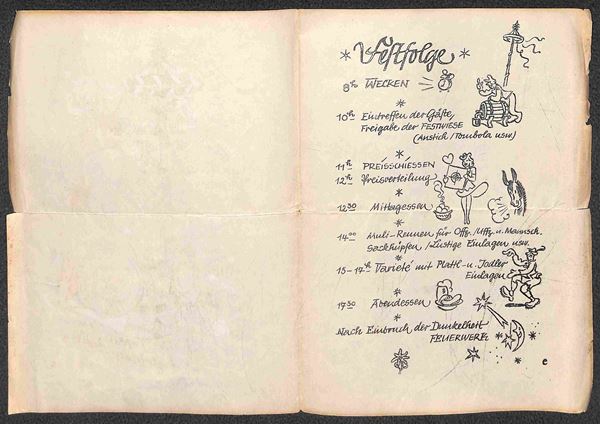 Festfolge
8 h WECKEN
10 h Eintreffen der Gäste,
Freigabe der FESTWIESE
(Anstich / Tombola usw)
11 h PREISSCHIESSEN
12 h Preisverteilung
12 30 Mittagessen
14 00 Muli-Rennen für Offz./Uffz. u. Mannsch.
Sackhüpfen / Lustige Einlagen usw.
15-17 h Varieté mit Plattl- u. Jodler
Einlagen
17 30 Abendessen
Nach Einbruch der Dunkelheit
FEUERWERK
e